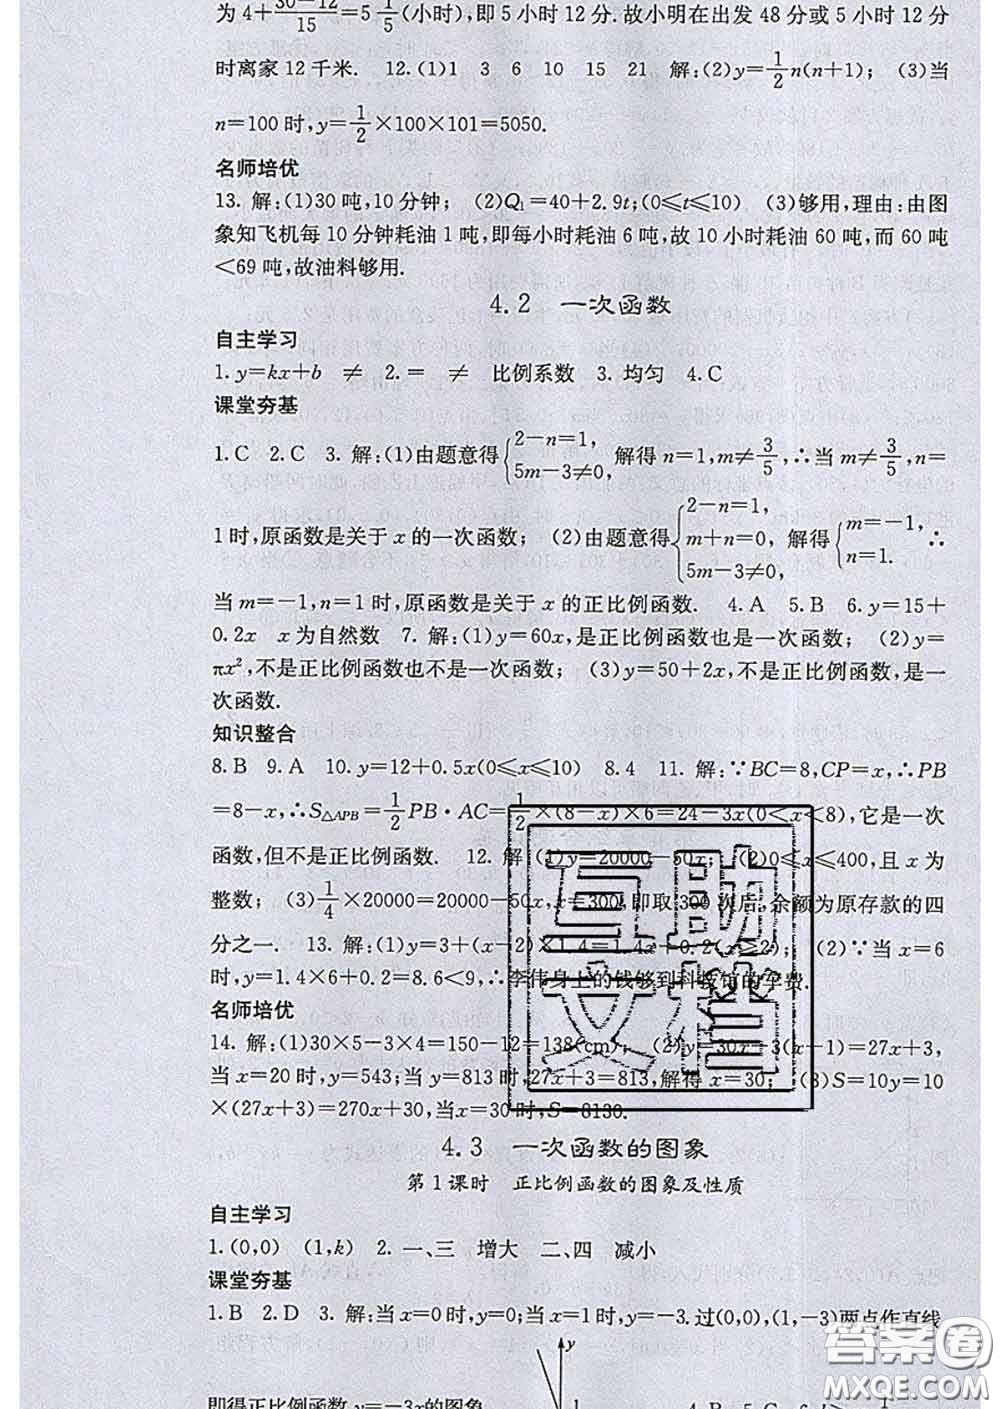 为4+(30-12)/15=5 1/5(小时),即5小时12分.故小明在出发48分或5小时12分
时离家12千米. 12.(1)1 3 6 10 15 21 解:(2)y=1/2 n(n+1); (3)当
n=100时,y=1/2×100×101=5050.
名师培优
13. 解:(1)30吨,10分钟; (2)Q₁=40+2.9t;(0≤t≤10) (3)够用,理由:由图
象知飞机每10分钟耗油1吨,即每小时耗油6吨,故10小时耗油60吨,而60吨
<69吨,故油料够用.
4.2 一次函数
自主学习
1.y=kx+b ≠ 2.= ≠ 比例系数 3.均匀 4.C
课堂夯基
1.C 2.C 3. 解:(1)由题意得{2-n=1, 5m-3≠0, 解得n=1,m≠3/5,∴当m≠3/5,n=
1时,原函数是关于x的一次函数; (2)由题意得{2-n=1, m+n=0, 5m-3≠0, 解得{m=-1, n=1. ∴
当m=-1,n=1时,原函数是关于x的正比例函数. 4.A 5.B 6.y=15+
0.2x x为自然数 7. 解:(1)y=60x,是正比例函数也是一次函数; (2)y=
πx²,不是正比例函数也不是一次函数; (3)y=50+2x,不是正比例函数,是一
次函数.
知识整合
8.B 9.A 10.y=12+0.5x(0≤x≤10) 8.4 11. 解:∵BC=8,CP=x,∴PB
=8-x,∴S△APB=1/2 PB·AC=1/2×(8-x)×6=24-3x(0<x<8),它是一次
函数,但不是正比例函数. 12. 解:(1)y=20000-50x; (2)0≤x≤400,且x为
整数; (3)1/4×20000=20000-50x,x=300,即取300次后,余额为原存款的四
分之一. 13. 解:(1)y=3+(x-2)×1.4=1.4x+0.2(x≥2); (2)∵当x=6
时,y=1.4×6+0.2=8.6<9,∴李伟身上的钱够到科技馆的学费.
名师培优
14. 解:(1)30×5-3×4=150-12=138(cm); (2)y=30x-3(x-1)=27x+3,
当x=20时,y=543;当y=813时,27x+3=813,解得x=30; (3)S=10y=10
×(27x+3)=270x+30,当x=30时,S=8130.
互助
文档
4.3 一次函数的图象
第1课时 正比例函数的图象及性质
自主学习
1.(0,0) (1,k) 2.一、三 增大 二、四 减小
课堂夯基
1.B 2.D 3. 解:当x=0时,y=0;当x=1时,y=-3.过(0,0),(1,-3)两点作直线
y
即得正比例函数y=-3x的图象
答案圈
MXQE.COM